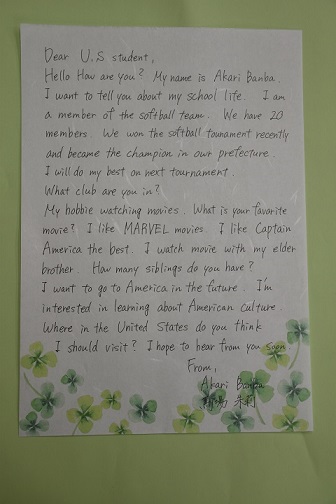 Dear U.S student,
Hello How are you? My name is Akari Banba.
I want to tell you about my school life. I am
a member of the softball team. We have 20
members. We won the softball tounament recently
and became the champion in our prefecture.
I will do my best on next tournament.
What club are you in?
My hobbie watching movies. What is your favorite
movie? I like MARVEL movies. I like Captain
America the best. I watch movie with my elder
brother. How many siblings do you have?
I want to go to America in the future. I'm
interested in learning about American culture.
Where in the United States do you think
I should visit? I hope to hear from you soon
From,
Akari Banba
朱莉